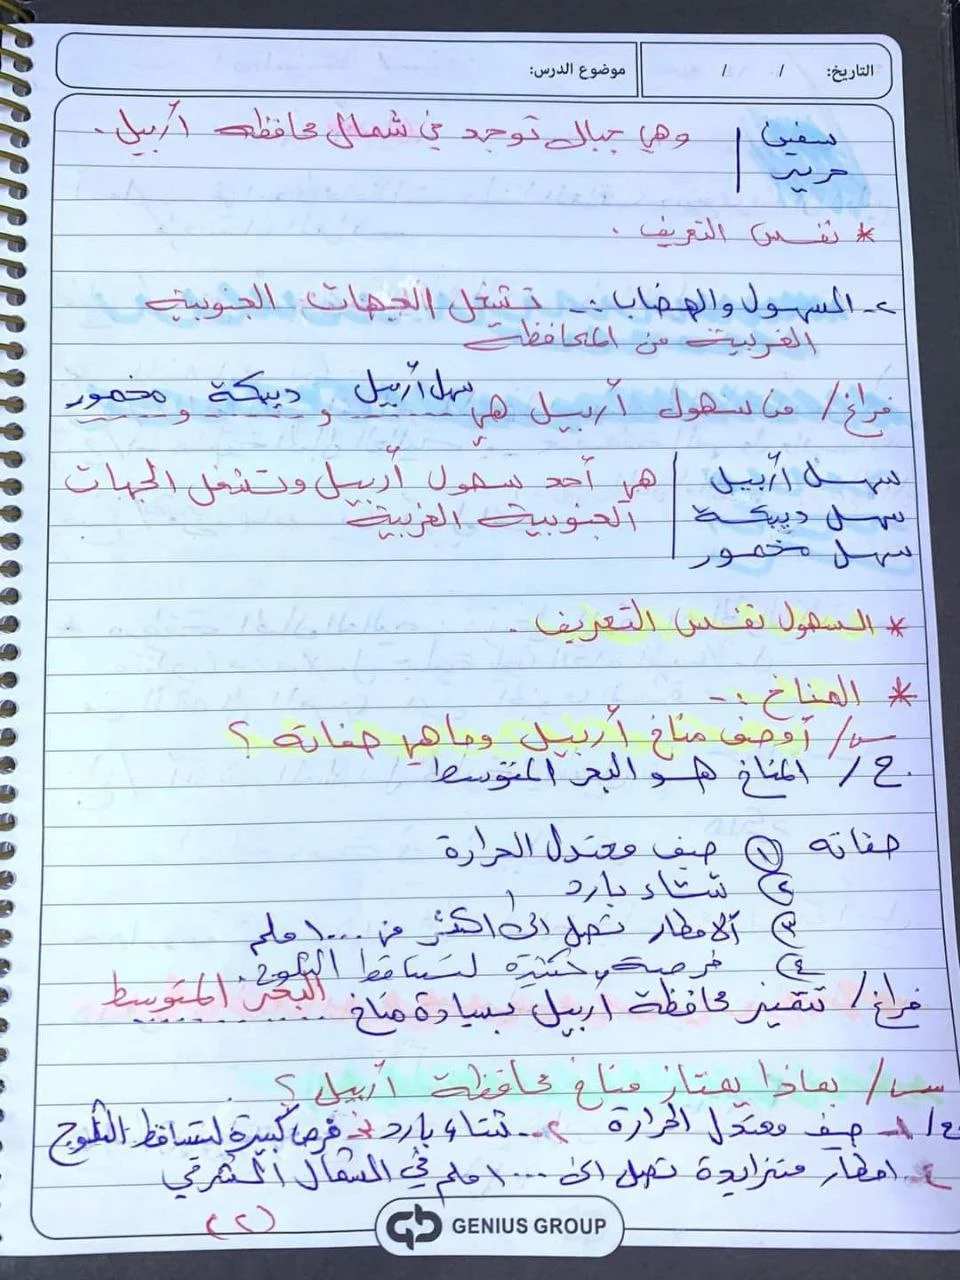 التاريخ: / /
موضوع الدرس:
سفين
حرير
وهي جبال توجد في شمال محافظة أربيل.
* نفس التعريف.
٢- السهول والهضاب :- تشغل الجهات الجنوبية
الغربية من المحافظة
فراغ/ من سهول أربيل هي سهل أربيل و ديبكة و مخمور
سهل أربيل
سهل ديبكة
سهل مخمور
هي أحد سهول أربيل وتشغل الجهات
الجنوبية الغربية
* السهول نفس التعريف.
* المناخ :-
س/ أوصف مناخ أربيل وما هي صفاته ؟
ج/ المناخ هو البحر المتوسط
صفاته ١ صيف معتدل الحرارة
٢ شتاء بارد
٣ الامطار تصل الى اكثر من ١٠٠٠ ملم
٤ فرصة كثيرة لتساقط الثلوج.
فراغ/ تتميز محافظة أربيل بسيادة مناخ البحر المتوسط
س/ بماذا يمتاز مناخ محافظة أربيل ؟
ج/ ١- صيف معتدل الحرارة ٢- شتاء بارد ٣- فرص كبيرة لتساقط الثلوج
٤- امطار متزايدة تصل الى ١٠٠٠ ملم في الشمال الشرقي
(٢)
GENIUS GROUP